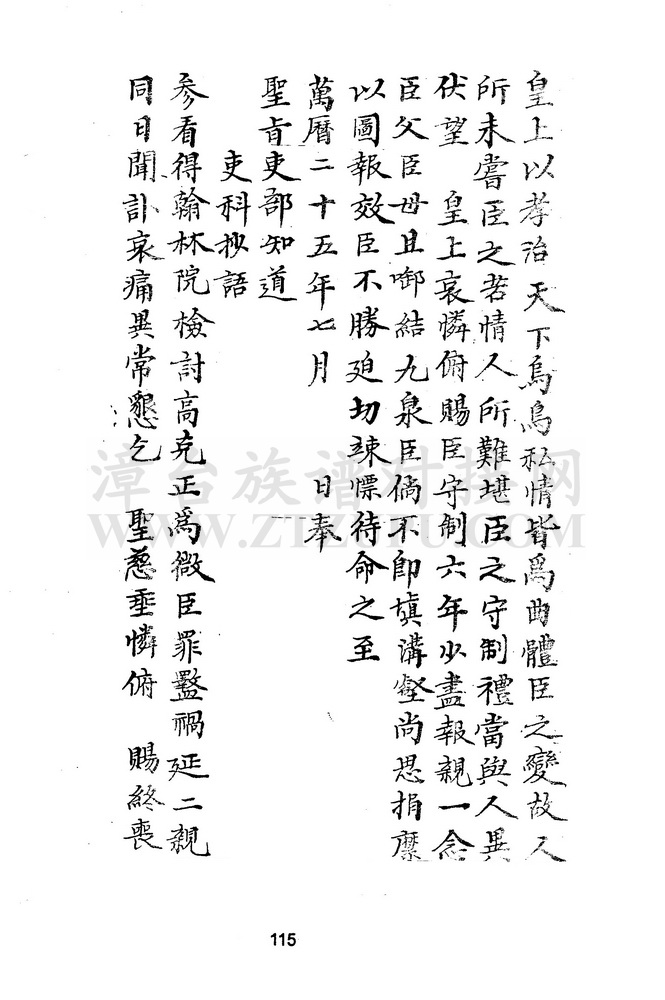 皇上以孝治天下烏鳥私情皆為曲體臣之變故人
所未嘗臣之苦情人所難堪臣之守制禮當與人異
伏望　皇上哀憐俯賜臣守制六年少盡報親一念
臣父臣母且啣結九泉臣倘不即填溝壑尚思捐糜
以圖報效臣不勝廹切竦慄待命之至
萬曆二十五年七月　　日奉
聖旨吏部知道
吏科抄語
參看得翰林院檢討高克正為微臣罪盭禍延二親
同日聞訃哀痛異常懇乞　聖慈垂憐俯　賜終喪
漳台族谱对接网
WWW.ZTZPW.COM
115